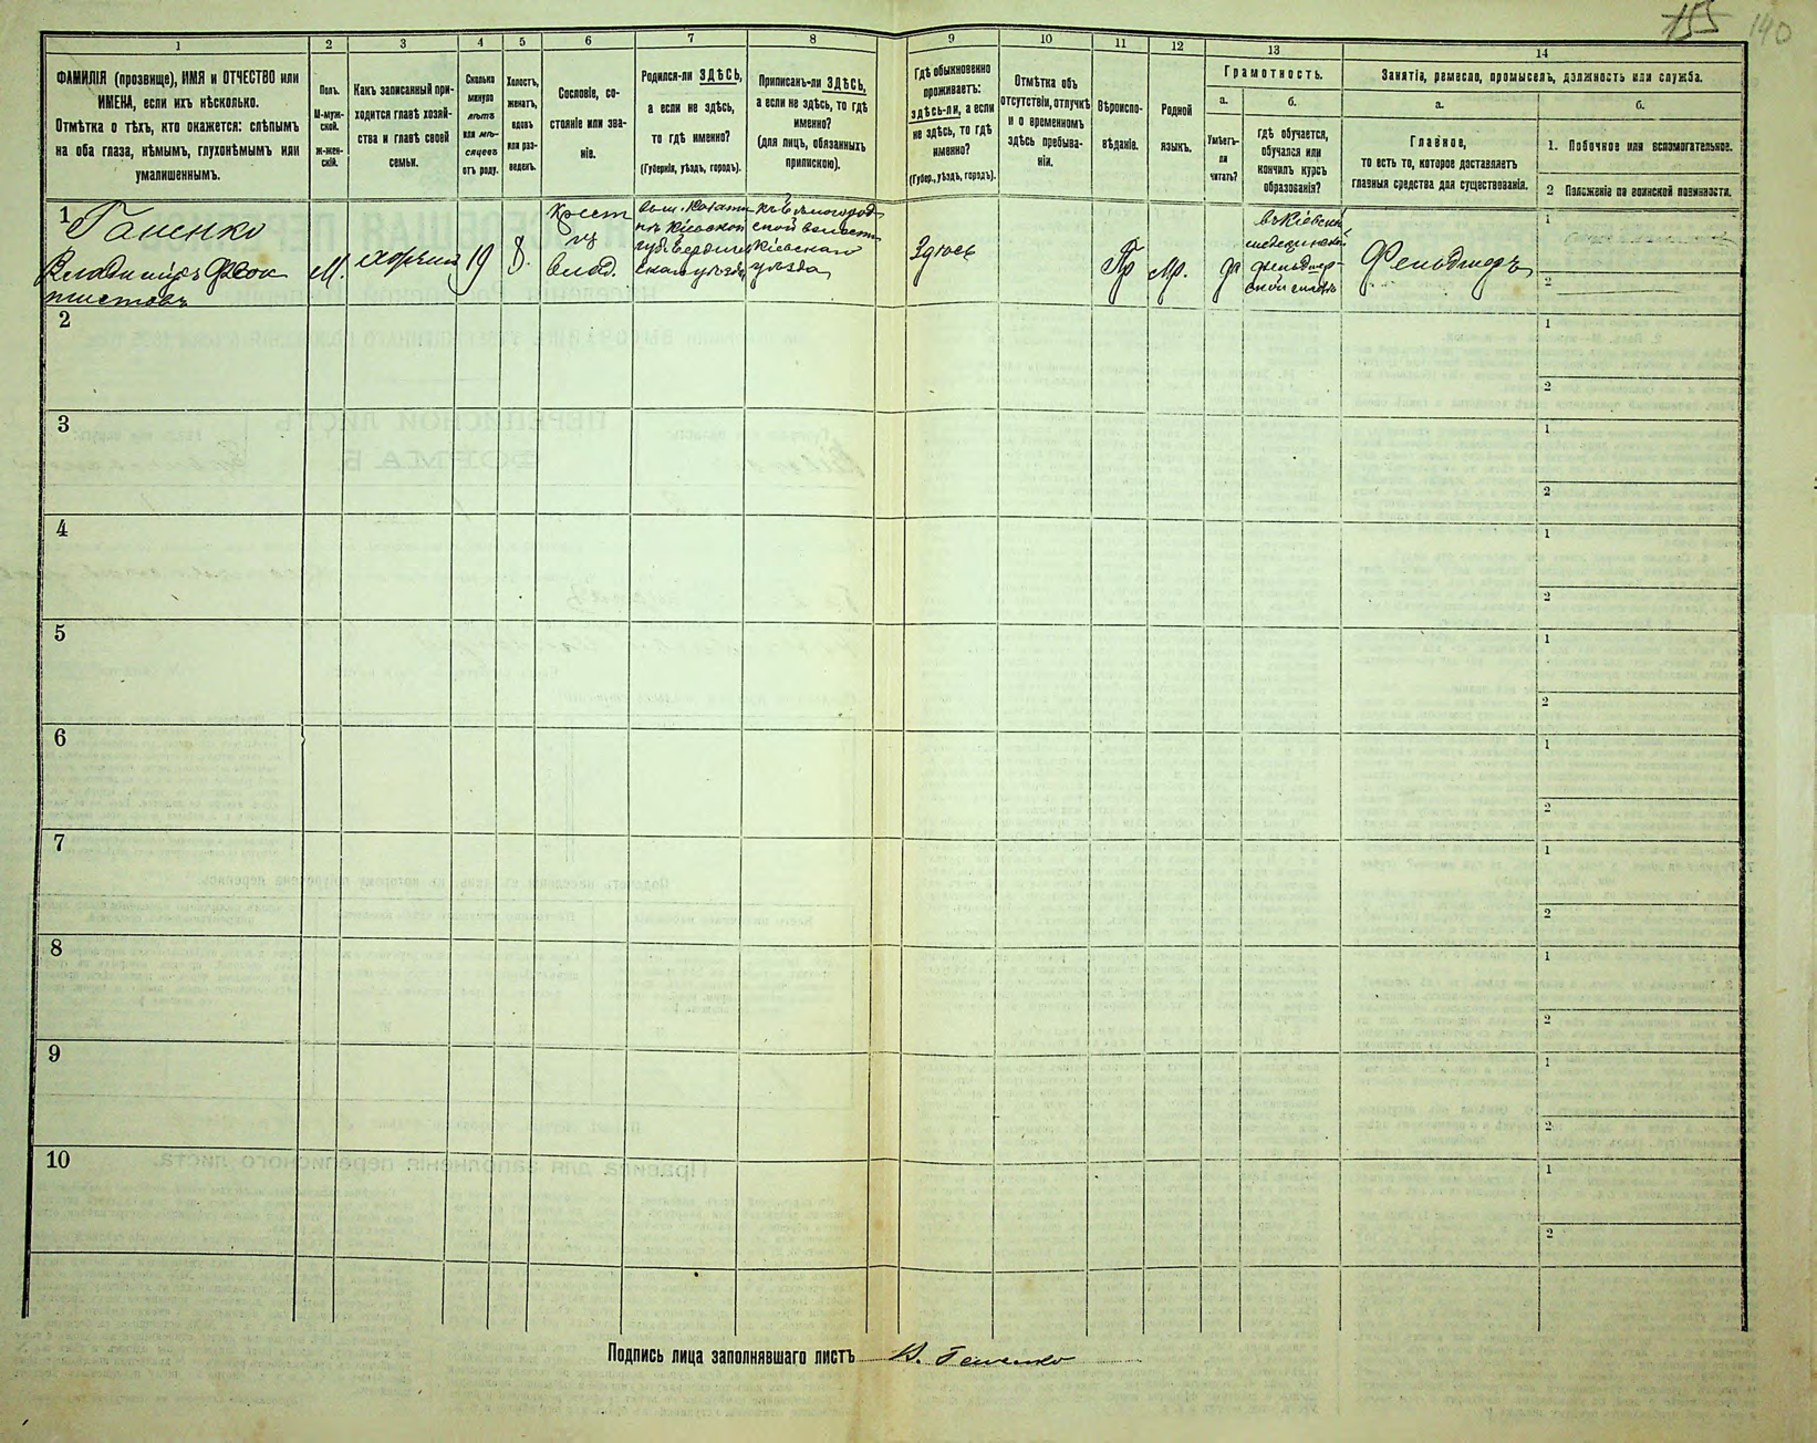 155 140
1 2 3 4 5 6 7 8 9 10 11 12 13 14
ФАМИЛІЯ (прозвище), ИМЯ и ОТЧЕСТВО или
ИМЕНА, если ихъ нѣсколько.
Отмѣтка о тѣхъ, кто окажется: слѣпымъ
на оба глаза, нѣмымъ, глухонѣмымъ или
умалишеннымъ.
Полъ.
М-муж-
ской.
ж-жен-
скій.
Какъ записанный при-
ходится главѣ хозяй-
ства и главѣ своей
семьи.
Сколько
минуло
лѣтъ
или мѣ-
сяцевъ
отъ роду.
Холостъ,
женатъ,
вдовъ
или раз-
веденъ.
Сословіе, со-
стояніе или зва-
ніе.
Родился-ли ЗДѢСЬ,
а если не здѣсь,
то гдѣ именно?
(Губернія, уѣздъ, городъ).
Приписанъ-ли ЗДѢСЬ,
а если не здѣсь, то гдѣ
именно?
(для лицъ, обязанныхъ
припискою).
Гдѣ обыкновенно
проживаетъ:
здѣсь-ли, а если
не здѣсь, то гдѣ
именно?
(Губер., уѣздъ, городъ).
Отмѣтка объ
отсутствіи, отлучкѣ
и о временномъ
здѣсь пребыва-
ніи.
Вѣроиспо-
вѣданіе.
Родной
языкъ.
Грамотность.
а.
Умѣетъ-
ли
читать?
б.
гдѣ обучается,
обучался или
кончилъ курсъ
образованія?
Занятіе, ремесло, промыселъ, должность или служба.
а.
Главное,
то есть то, которое доставляетъ
главныя средства для существованія.
б.
1. Побочное или вспомогательное.
2 Положеніе по воинской повинности.
1 Ганенко
Владимиръ
М.
19
Крест
влад.
губ. Бердичев
скаго уѣзда
Кіевскаго
уѣзда
Здѣсь
Пр
Мр.
да
въ Кіевской
фельдшер-
ской
Фельдшеръ
1
2
2
1
2
3
1
2
4
1
2
5
1
2
6
1
2
7
1
2
8
1
2
9
1
2
10
1
2
Подпись лица заполнявшаго листъ В. Ганенко